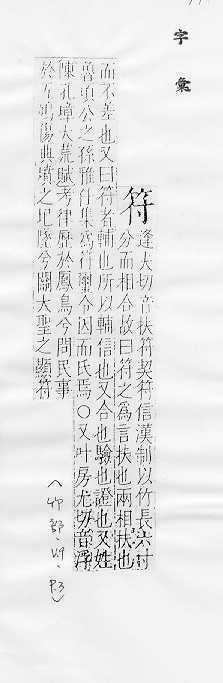 字彙
符
逢夫切音扶符契符信漢制以竹長六寸
分而相合故曰符之為言扶也兩相扶也
而不差也又曰符者輔也所以輔信也又合也驗也證也又姓
魯頃公之孫雅仕秦為符璽令因而氏焉○又叶房尤切音浮
陳孔璋大荒賦考律歷於鳳鳥兮問民事
於五鳩傷典墳之圮墜兮闡大聖之顯符
(竹部、V.9、P.3)